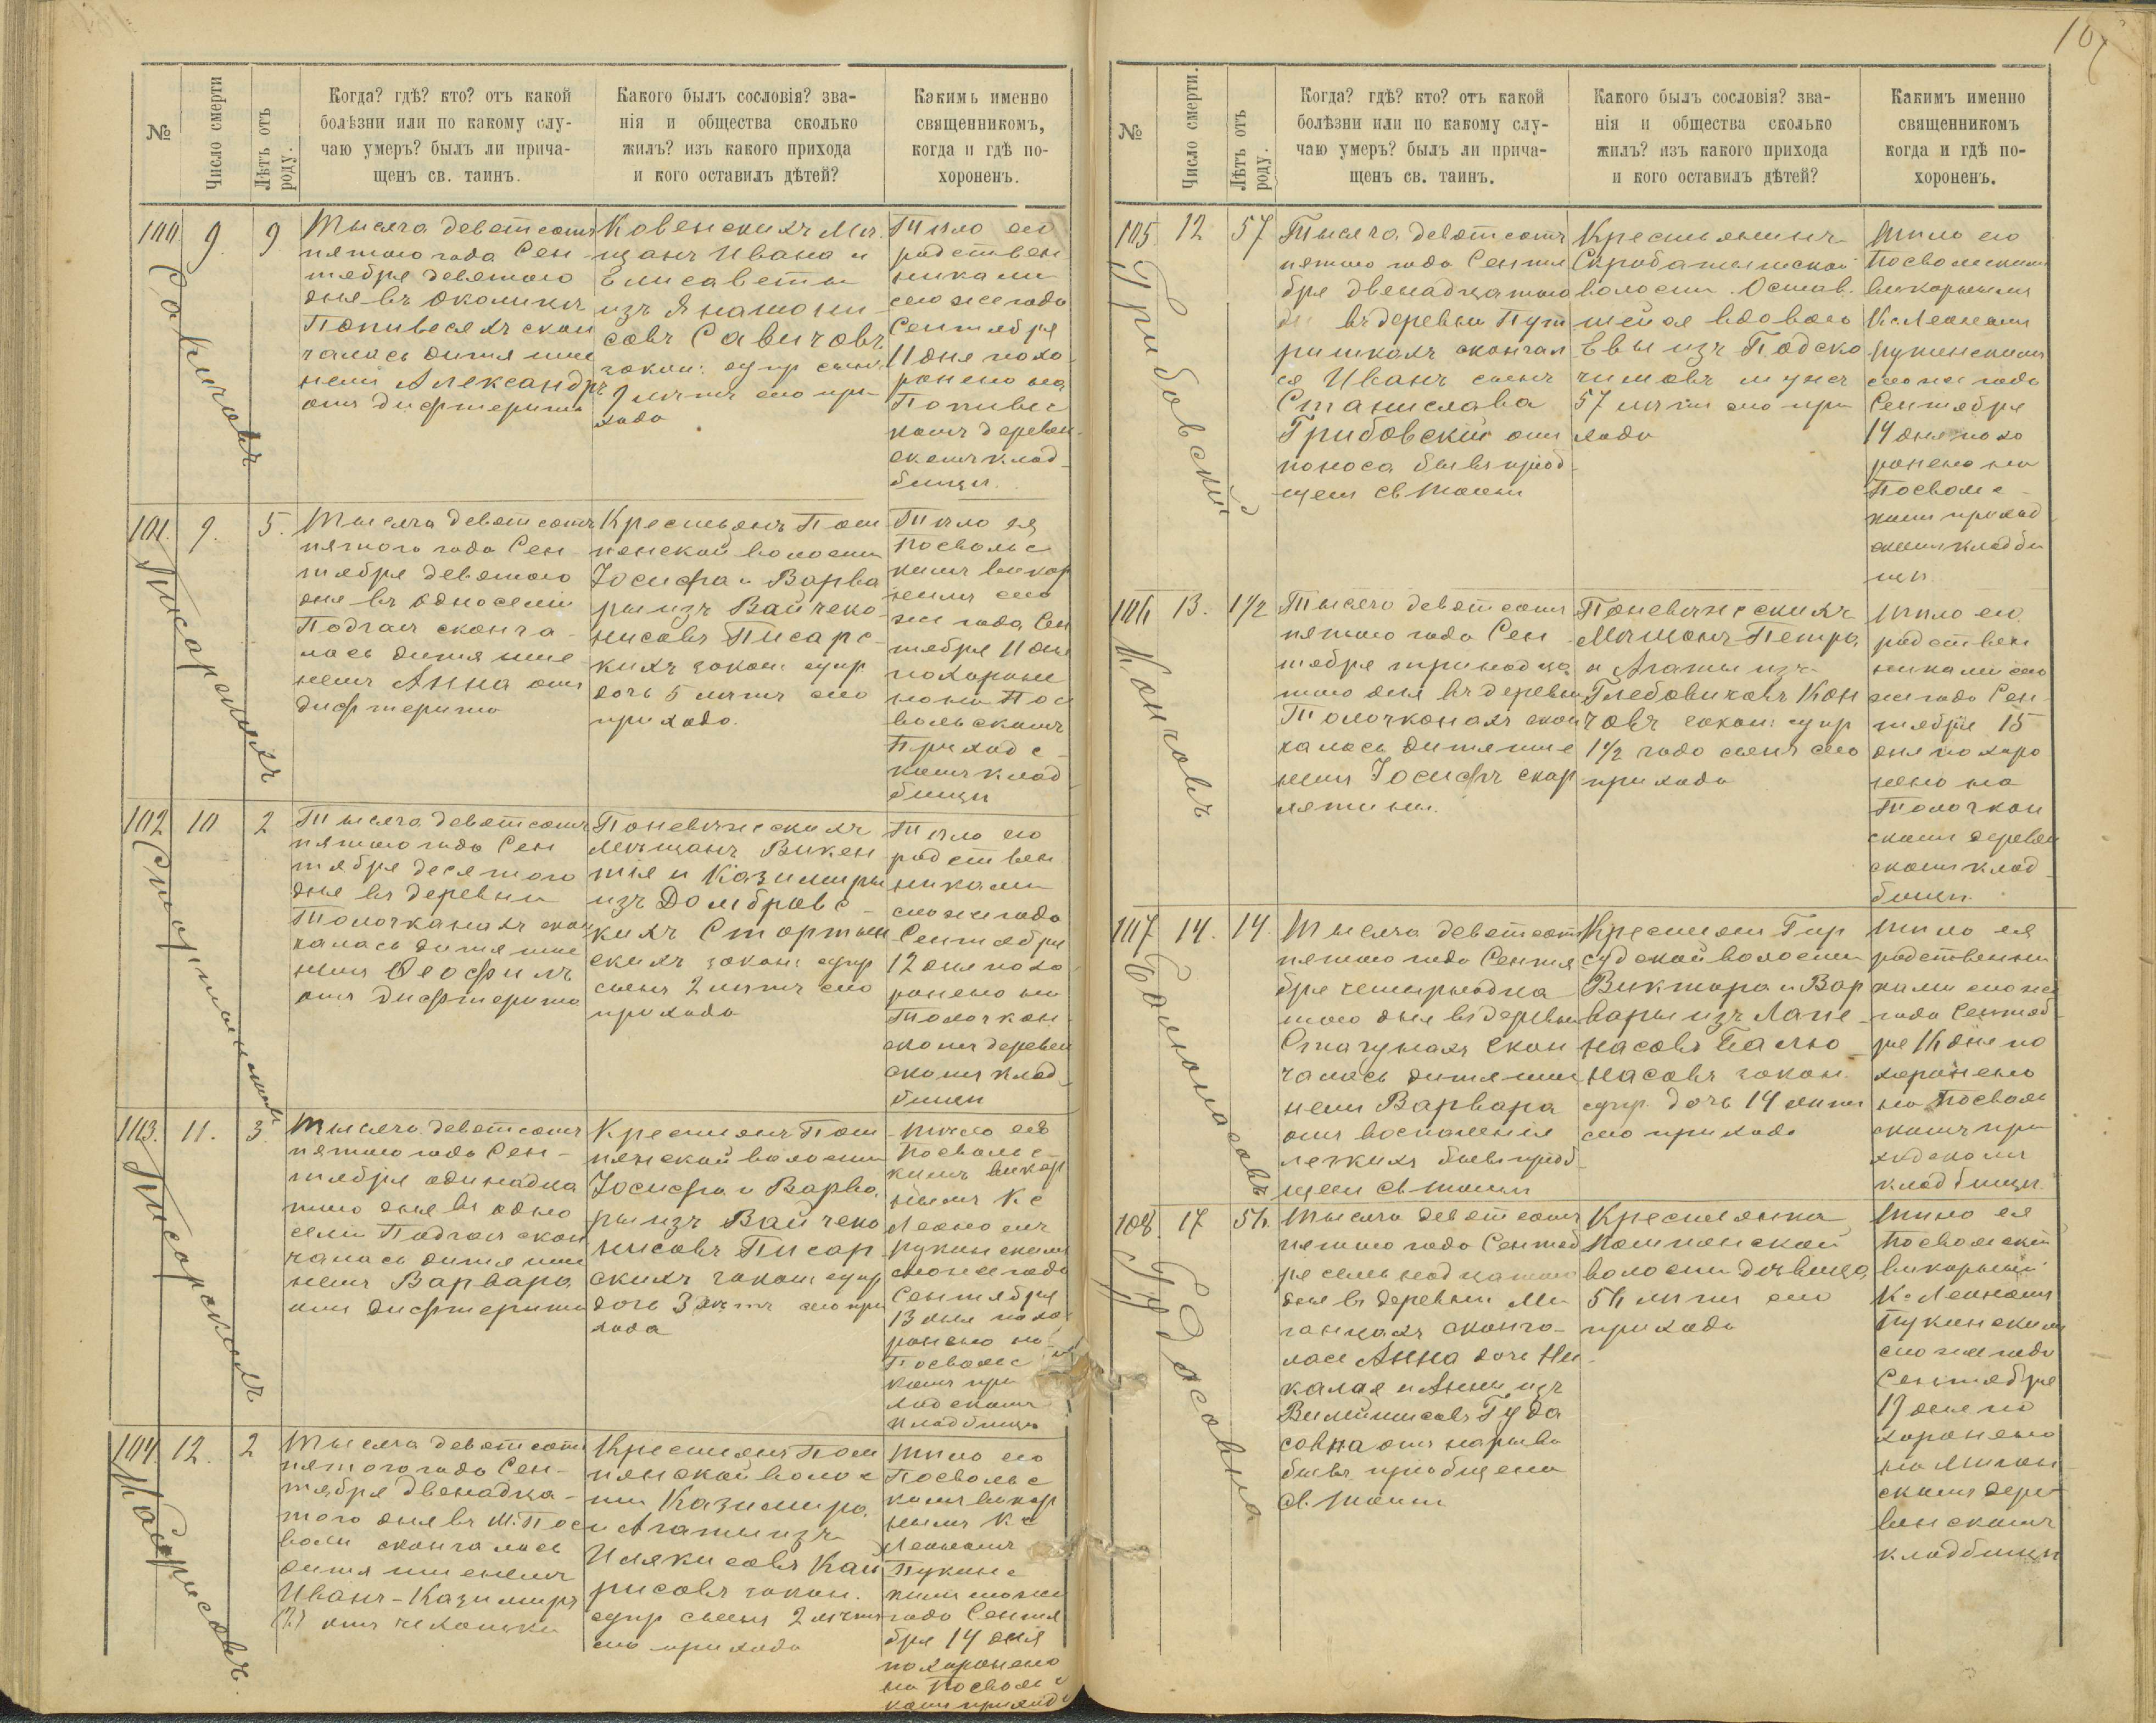 107
№
Число смерти
Лѣтъ отъ роду.
Когда? гдѣ? кто? отъ какой
болѣзни или по какому слу-
чаю умеръ? былъ ли прича-
щенъ св. таинъ.
Какого былъ сословія? зва-
нія и общества сколько
жилъ? изъ какого прихода
и кого оставилъ дѣтей?
Какимъ именно
священникомъ,
когда и гдѣ по-
хороненъ.
100
Савичовъ
9
9
Тысяча девятсотъ
пятого года Сен-
тября девятого
дня въ околицѣ
Попивесяхъ скон
чалось дитя име
немъ Александръ
отъ дифтерита
Ковенскихъ Мѣ-
щанъ Ивана и
Елисаветы
изъ Янатони-
совъ Савичовъ
закон: супр сынъ
9 лѣтъ сего при-
хода
Тѣло его
родствен
никами
сего же года
Сентября
11 дня похо
ронено на
Попивес
комъ деревен-
скомъ клад-
бищѣ.
101.
Писарскихъ
9.
5.
Тысяча девятсотъ
пятого года Сен
тября девятого
дня въ односелiи
Подгаи сконча-
лось дитя име
немъ Анна отъ
дифтерита
Крестьянъ Пом
пянской волости
Іосифа и Варва
ры изъ Вайчеко-
нисовъ Писарс-
кихъ закон супр
дочь 5 лѣтъ сего
прихода.
Тѣло ея
Посвольс
кимъ викар
немъ сего
же года Сен
тября 11 дня
похороне
но на Пос
вольскомъ
Приход с-
комъ клад
бищѣ
102
10
2
Тысяча девятсотъ
пятого года Сен
тября десятого
дня въ деревни
Толочканахъ скон
чалось дитя име
немъ Ѳеофилъ
отъ дифтерита
Поневѣжскихъ
Мѣщанъ Викен
тія и Казимиры
изъ Домбровс-
кихъ Стортын
скихъ закон: супр
сынъ 2 лѣтъ сего
прихода
Тѣло его
родствен
никами
сего же года
Сентября
12 дня похо
ронено на
Толочкан-
скомъ деревен
скомъ клад-
бищѣ
103.
Писарскихъ
11.
3.
Тысяча девятсотъ
пятого года Сен-
тября одинадца
того дня въ одно
селiи Подгаи скон
чалась дитя име
немъ Варвара
отъ дифтерита
Крестьянъ Пом
пянской волости
Іосифа и Варва
ры изъ Вайчеко
нисовъ Писар
скихъ закон супр
дочь 3 лѣтъ сего при
хода
Тѣло её
Посвольс-
кимъ викар
нымъ Кс
Леономъ
Пукинскимъ
сего же года
Сентября
13 дня похо
ронено на
Посвольс
комъ при
ходскомъ
кладбищѣ
104.
12.
2
Тысяча девятсотъ
пятого года Сен-
тября двенадца-
того дня въ М. Пос
воли скончалось
дитя именемъ
Иванъ-Казимиръ
(2) отъ чехотки
Крестьянъ Пом
пянской волос
ти Казимира
и Агаты изъ
Илякисовъ Кай
рисовъ закон.
супр сынъ 2 лѣтъ
сего прихода
Тѣло его
Посвольс
кимъ викар
нымъ Кс
Леономъ
Пукинс
кимъ сего же
года Сентя
бря 14 дня
похоронено
на Посвольс
комъ приход
№
Число смерти.
Лѣтъ отъ роду.
Когда? гдѣ? кто? отъ какой
болѣзни или по какому слу-
чаю умеръ? былъ ли прича-
щенъ св. таинъ.
Какого былъ сословія? зва-
нія и общества сколько
жилъ? изъ какого прихода
и кого оставилъ дѣтей?
Какимъ именно
священникомъ
когда и гдѣ по-
хороненъ.
105
Грибовскій
12
57
Тысяча девятсотъ
пятого года Сентя
бря двенадцатого
въ деревни Пут
ришкахъ скончал
ся Иванъ сынъ
Станислава
Грибовскій отъ
поноса бывъ приоб-
щенъ Св Таинъ
Крестьянинъ
волости. Остав.
57 лѣтъ сего при
хода
Тѣло его
Посвольскимъ
викарнымъ
Кс. Леономъ
Пукинскимъ
сего же года
Сентября
14 дня похо
ронено на
Посвольс-
комъ приход
скомъ кладби
щѣ.
106
Кончовъ
13.
1½
Тысяча девятсотъ
пятого года Сен-
тября тринадца
того дня въ деревни
Толочканахъ скон
чалось дитя име
немъ Іосифъ скар
лятины.
Поневѣжскихъ
Мѣщанъ Петра
и Агаты изъ
Глебовичовъ Кон
човъ закон: супр
1½ года сынъ сего
прихода
Тѣло его
родствен
никами сего
же года Сен-
тября 15
дня похоро
нено на
Толочкан
скомъ деревен
скомъ клад-
бищѣ.
107
14.
14.
Тысяча девятсотъ
пятого года Сентя
бря четырнадца
того дня въ деревни
Стагунахъ Скон
чалась дитя име
немъ Варвара
отъ воспаленія
легкихъ бывъ приоб-
щена Св Таинъ
Крестьянъ Гир
судской волости
Виктора и Вар
вары изъ Лапе-
насовъ
насовъ закон.
супр. дочь 14 лѣтъ
сего прихода
Тѣло ея
родственни
ками сего же
года Сентяб-
ря 16 дня по
хоронено
на Посволь
скомъ при
ходскомъ
кладбищѣ.
108.
Гудасовна
17
56.
Тысяча девятсотъ
пятого года Сентяб
ря семьнадцатого
дня въ деревни Ми
ганцахъ сконча-
лась Анна дочь Ни
колая и Анны изъ
Вилюнисовъ Гуда
совна отъ нарыва
бывъ приобщена
Св. Таинъ
Крестьянка
Помпянской
волости дѣвица
56 лѣтъ сего
прихода
Тѣло ея
Посвольскій
викарный
Кс. Леономъ
Пукинскимъ
сего же года
Сентября
19 дня по
хоронено
на Миган
скомъ дере
венскомъ
кладбищѣ